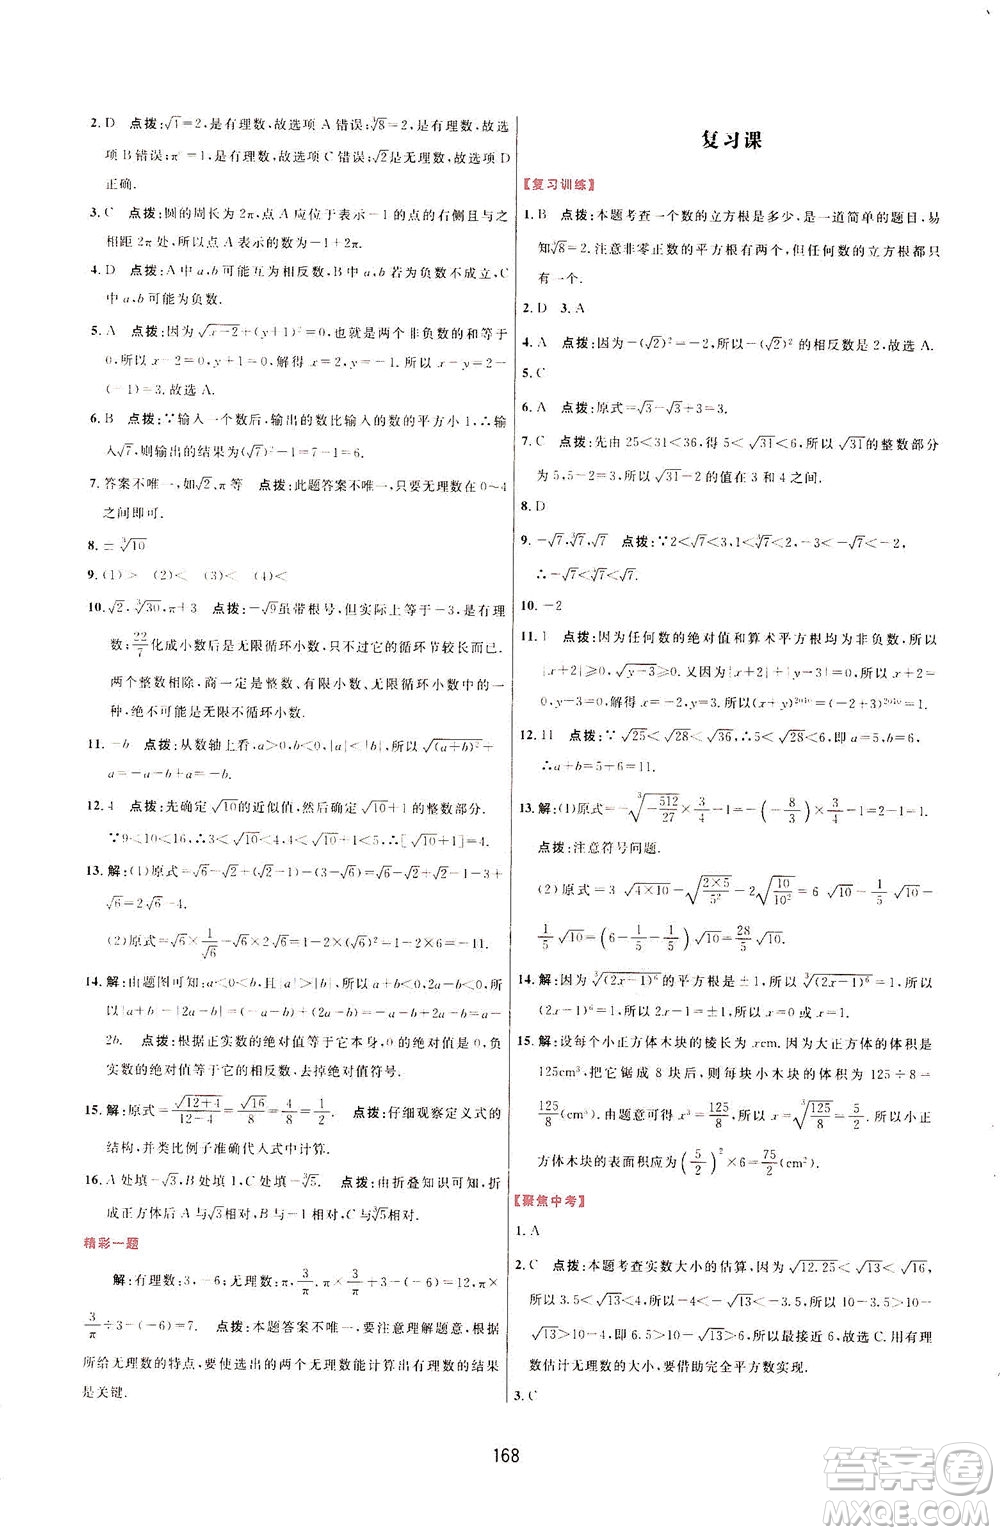 2. D 点拨:√1=2,是有理数,故选项 A 错误;∛8=2,是有理数,故选项 B 错误;π⁰=1,是有理数,故选项 C 错误;√2是无理数,故选项 D
正确.
3. C 点拨:圆的周长为 2π,点 A 应位于表示-1 的点的右侧且与之
相距 2π 处,所以点 A 表示的数为-1+2π.
4. D 点拨:A 中 a,b 可能互为相反数,B 中 a,b 若为负数不成立,C
中 a,b 可能为负数.
5. A 点拨:因为√x-2+(y+1)²=0,也就是两个非负数的和等于
0,所以 x-2=0,y+1=0,解得 x=2,y=-1,所以 x-y=2-
(-1)=3.故选 A.
6. B 点拨:∵输入一个数后,输出的数比输入的数的平方小 1,∴输
入√7,则输出的结果为(√7)²-1=7-1=6.
7. 答案不唯一,如√2,π等 点拨:此题答案不唯一,只要无理数在 0~4
之间即可.
8. ±∛10
9. (1)> (2)< (3)< (4)<
10. √2,∛30,π+3 点拨:-√9虽带根号,但实际上等于-3,是有理
数;22/7化成小数后是无限循环小数,只是循环节较长而已.
两个整数相除,商一定是整数、有限小数、无限循环小数中的一
种,绝不可能是无限不循环小数.
11. -b 点拨:从数轴上看,a>0,b<0,|a|<|b|,所以√(a+b)²+
a=-a-b+a=-b.
12. 4 点拨:先确定√10的近似值,然后确定√10+1 的整数部分.
∵9<10<16,∴3<√10<4,4<√10+1<5,∴[√10+1]=4.
13. 解:(1)原式=√6-√2+(√2-1)-(3-√6)=√6-√2+√2-1-3+
√6=2√6-4.
(2)原式=√6×1/√6-√6×2√6=1-2×(√6)²=1-2×6=-11.
14. 解:由题图可知:a<0,a-b<0,|2a|>|b|,所以 a+b<0.所
以|a-b|-|2a|=-(a-b)-(-2a)=-a+b+2a=a+
2b. 点拨:根据正实数的绝对值等于它本身,0 的绝对值是 0,负
实数的绝对值是它的相反数,去掉绝对值符号.
15. 解:原式=√12+4/12-4=√16/8=4/8=1/2. 点拨:仔细观察定义式的
结构,并类比例子准确代入式中计算.
16. A 处填-√3,B处填-1,C处填∛5. 点拨:由折叠知识可知,折
成正方体后 A 与√3相对,B 与 1 相对,C 与-∛5相对.
精彩一题
解:有理数:3,-6;无理数:π,3/π;π×3/π+3-(-6)=12,π×
3/π÷3-(-6)=7. 点拨:本题答案不唯一,要注意理解题意,根据
所给无理数的特点,使选出的两个无理数能计算出有理数的结果
是关键.
复习课
【复习训练】
1. B 点拨:本题考查一个数的立方根是多少,是一道简单的题目,易
知∛8=2.注意非零正数的平方根有两个,但任何数的立方根都只
有一个.
2. D 3. A
4. A 点拨:因为-(√2)²=-2,所以-(√2)²的相反数是 2,故选 A.
5. C
6. A 点拨:原式=√3-√3+3=3.
7. C 点拨:先由 25<31<36,得 5<√31<6,所以√31的整数部分
为 5,5-2=3,所以√31-2 的值在 3 和 4 之间.
8. D
9. -√7,∛7,√7 点拨:∵2<√7<3,1<∛7<2,
∴-√7<∛7<√7.
10. -2
11. 1 点拨:因为任何数的绝对值和算术平方根均为非负数,所以
|x+2|≥0,√y-3≥0.又因为|x+2|+√y-3=0,所以 x+2=
0,y-3=0,解得 x=-2,y=3.所以(x+y)²⁰¹⁰=(-2+3)²⁰¹⁰=1.
12. 11 点拨:∵√25<√28<√36,∴5<√28<6,所以 a=5,b=6,即
∴a+b=5+6=11.
13. 解:(1)原式=-∛-512/27×3/4-1=-(-8/3)×3/4-1=2-1=1.
点拨:注意符号问题.
(2)原式=3√4×10-√2×5/5²-2√10/10²=6√10-1/5√10-
1/5√10=(6-1/5-1/5)√10=28/5√10.
14. 解:因为∛(2x-1)⁶的平方根是±1,所以∛(2x-1)⁶=1,所以
(2x-1)⁶=1,所以 2x-1=±1,所以 x=0 或 x=1.
15. 解:设每个小正方体木块的棱长为 xcm.因为大正方体的体积为
125cm³,把它锯成 8 块后,每块小木块的体积为 125÷8=
125/8(cm³).由题意可得 x³=125/8,所以 x=∛125/8=5/2.所以小正
方体木块的表面积应为(5/2)²×6=75/2(cm²).
【聚焦中考】
1. A
2. C 点拨:本题考查实数大小的估算,因为√12.25<√13<√16,
所以 3.5<√13<4,所以-4<-√13<-3.5,所以 10-3.5>10-
√13>10-4,即 6.5>10-√13>6,所以 10-√13≈6,故选 C.用有理
数估计无理数的大小,要借助完全平方数实现.
3. C
168
答案圈
MXQE.COM